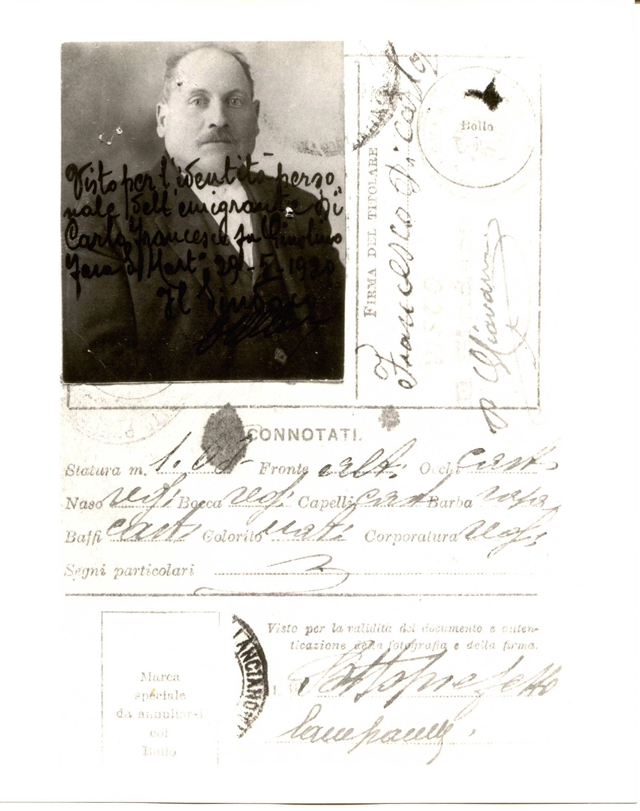 Visto per l'identità perso
nale dell'emigrante Di
Carlo Francesco fu
Fara S. Mart° 29-5-1920
Il Sindaco
FIRMA DEL TITOLARE
Francesco Di Carlo
Bollo
Giovanni
CONNOTATI.
Statura m. 1. Fronte alt. Occhi cast.
Naso reg. Bocca reg. Capelli cast. Barba rasa
Baffi cast. Colorito nat. Corporatura reg.
Segni particolari
Visto per la validità del documento e auten-
ticazione della fotografia e della firma.
LANCIANO
Marca
speciale
da annullarsi
col
Bollo
Sottoprefetto